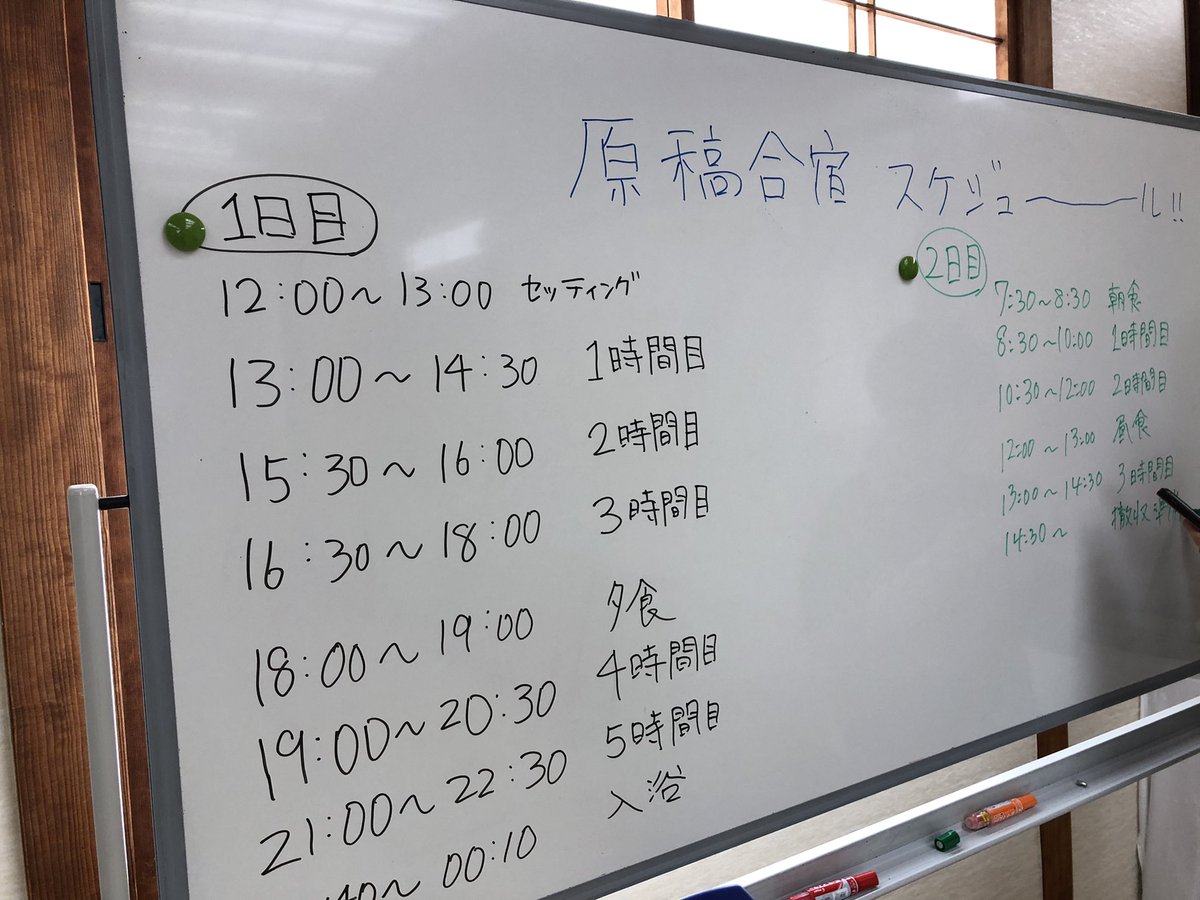 原稿合宿 スケジュール!!
1日目
12:00〜13:00 セッティング
13:00〜14:30 1時間目
15:30〜16:00 2時間目
16:30〜18:00 3時間目
18:00〜19:00 夕食
19:00〜20:30 4時間目
21:00〜22:30 5時間目
40〜00:10 入浴
2日目
7:30〜8:30 朝食
8:30〜10:00 1時間目
10:30〜12:00 2時間目
12:00〜13:00 昼食
13:00〜14:30 3時間目
14:30〜 撤収準